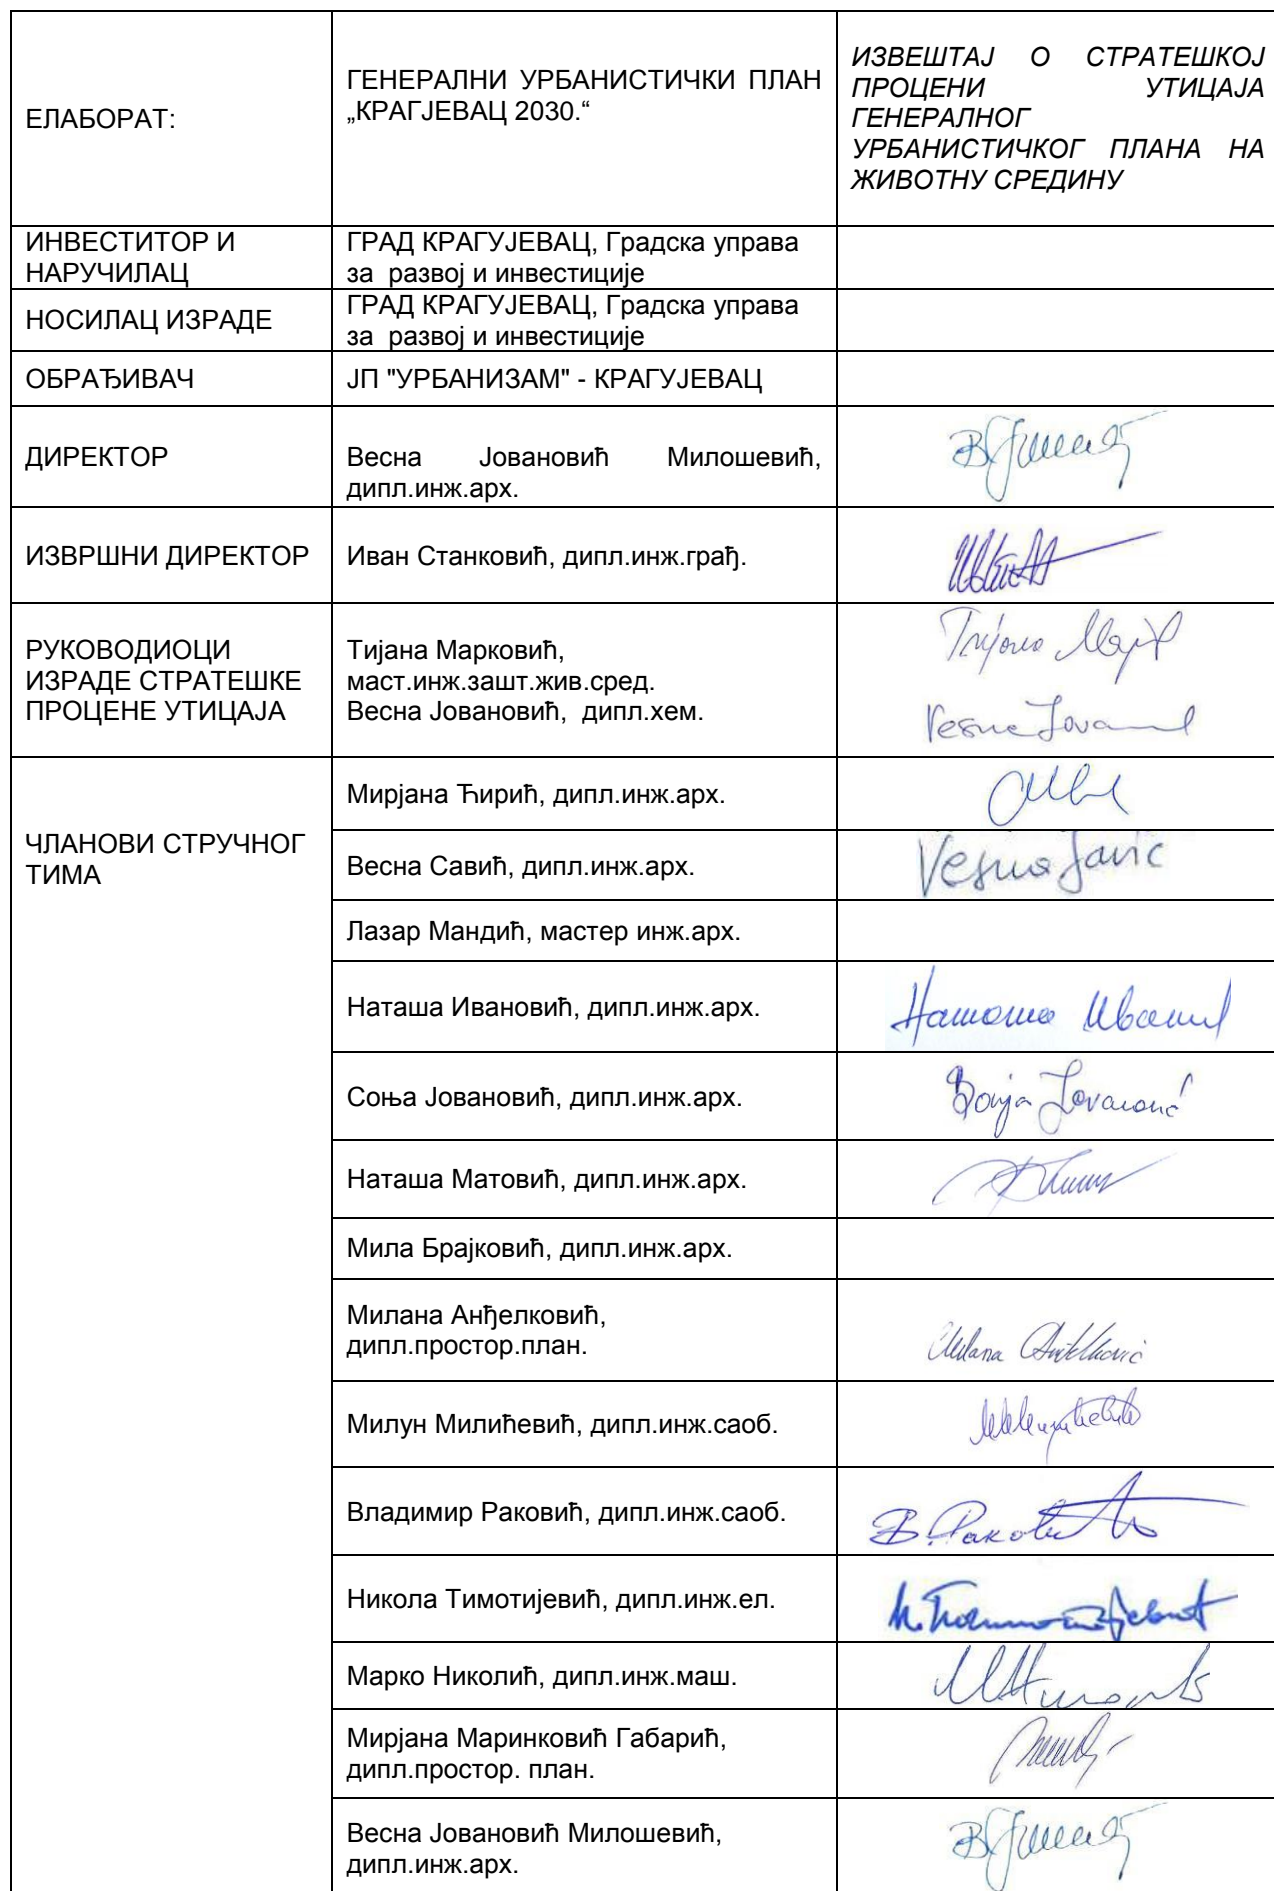 ЕЛАБОРАТ:
ГЕНЕРАЛНИ УРБАНИСТИЧКИ ПЛАН
„КРАГЈЕВАЦ 2030.“
ИЗВЕШТАЈ О СТРАТЕШКОЈ
ПРОЦЕНИ УТИЦАЈА
ГЕНЕРАЛНОГ
УРБАНИСТИЧКОГ ПЛАНА НА
ЖИВОТНУ СРЕДИНУ
ИНВЕСТИТОР И
НАРУЧИЛАЦ
ГРАД КРАГУЈЕВАЦ, Градска управа
за развој и инвестиције
НОСИЛАЦ ИЗРАДЕ
ГРАД КРАГУЈЕВАЦ, Градска управа
за развој и инвестиције
ОБРАЂИВАЧ
ЈП "УРБАНИЗАМ" - КРАГУЈЕВАЦ
ДИРЕКТОР
Весна Јовановић Милошевић,
дипл.инж.арх.
ИЗВРШНИ ДИРЕКТОР
Иван Станковић, дипл.инж.грађ.
РУКОВОДИОЦИ
ИЗРАДЕ СТРАТЕШКЕ
ПРОЦЕНЕ УТИЦАЈА
Тијана Марковић,
маст.инж.зашт.жив.сред.
Весна Јовановић, дипл.хем.
ЧЛАНОВИ СТРУЧНОГ
ТИМА
Мирјана Ћирић, дипл.инж.арх.
Весна Савић, дипл.инж.арх.
Vesna Savić
Лазар Мандић, мастер инж.арх.
Наташа Ивановић, дипл.инж.арх.
Соња Јовановић, дипл.инж.арх.
Sonja Jovanović
Наташа Матовић, дипл.инж.арх.
Мила Брајковић, дипл.инж.арх.
Милана Анђелковић,
дипл.простор.план.
Милун Милићевић, дипл.инж.саоб.
Владимир Раковић, дипл.инж.саоб.
Никола Тимотијевић, дипл.инж.ел.
Марко Николић, дипл.инж.маш.
Мирјана Маринковић Габарић,
дипл.простор. план.
Весна Јовановић Милошевић,
дипл.инж.арх.